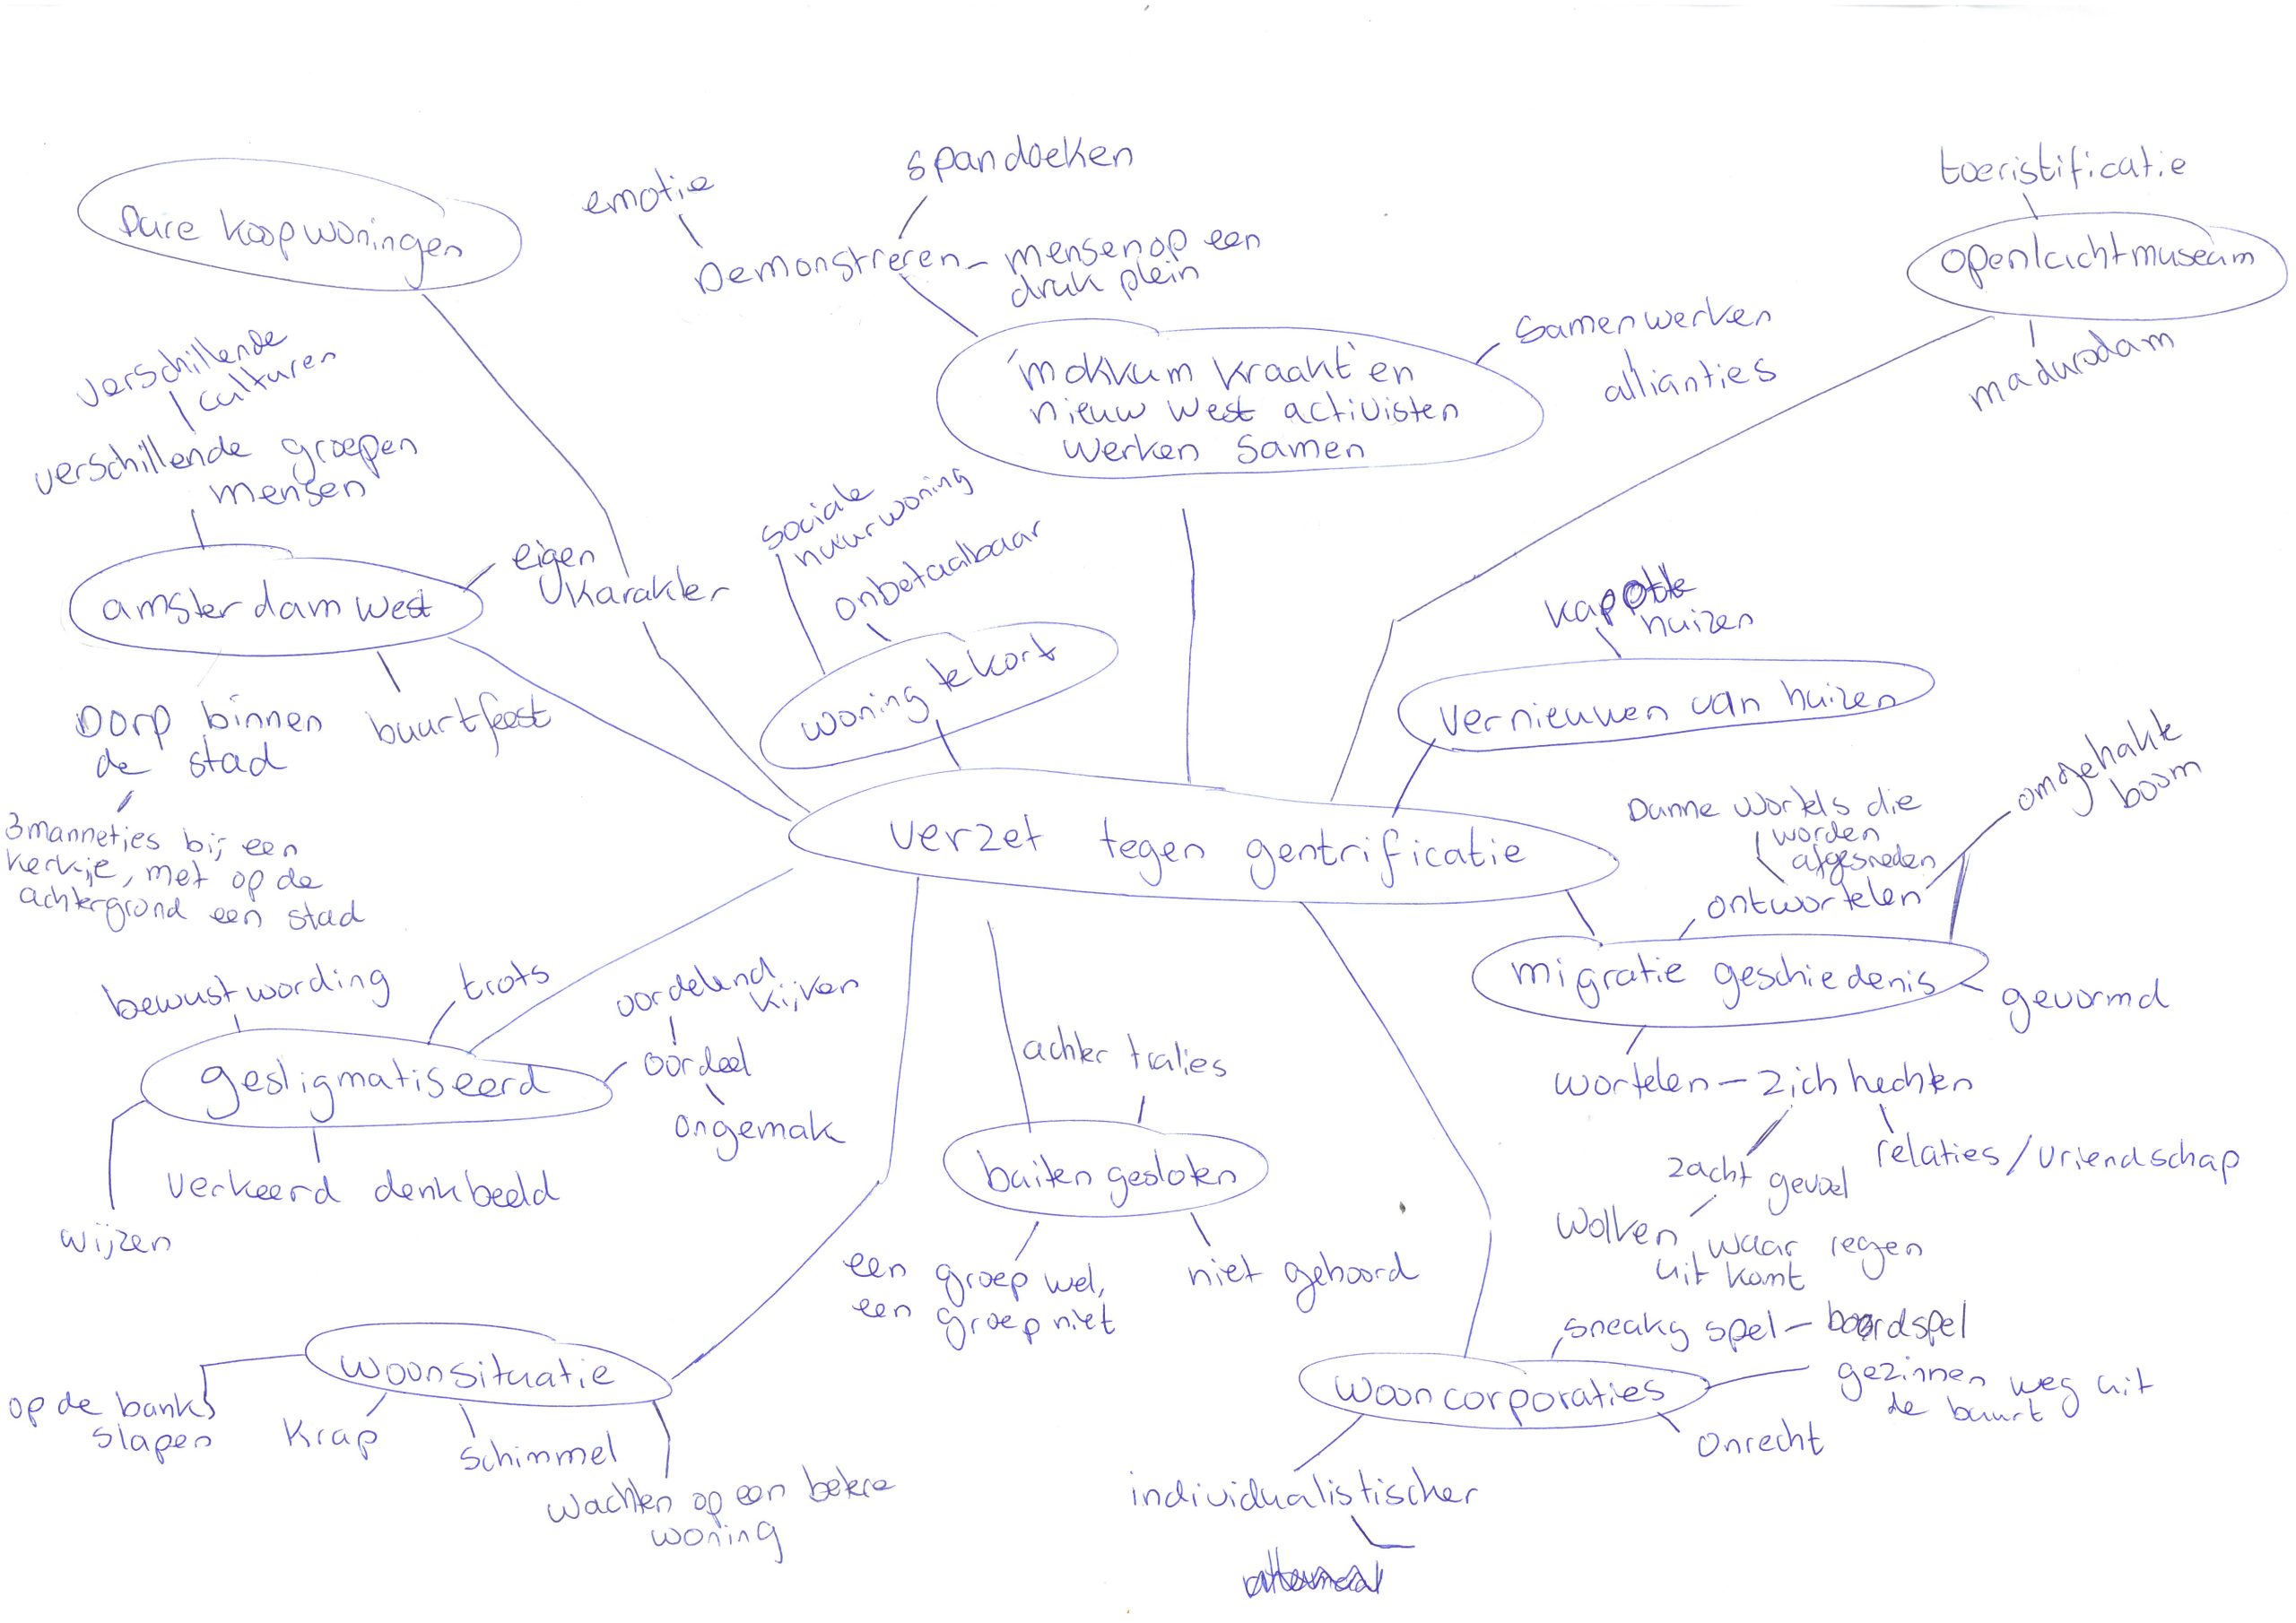 Dure koopwoningen
emotie
spandoeken
Demonstreren - mensen op een
druk plein
'mokkum kraakt' en
nieuw west activisten
werken samen
samenwerken
allianties
toeristificatie
openluchtmuseum
madurodam
verschillende
culturen
verschillende groepen
mensen
amsterdam west
eigen
karakter
Dorp binnen
de stad
buurtfeest
3 mannetjes bij een
kerkje, met op de
achtergrond een stad
sociale
huurwoning
onbetaalbaar
woning tekort
kapotte
huizen
vernieuwen van huizen
verzet tegen gentrificatie
omgehakte
boom
Dunne wortels die
worden
afgesneden
ontwortelen
migratie geschiedenis
gevormd
wortelen - zich hechten
relaties/vriendschap
zacht gevoel
wolken, waar regen
uit komt
bewustwording
trots
oordelend
kijken
oordeel
ongemak
gestigmatiseerd
verkeerd denkbeeld
wijzen
achter tralies
buiten gesloten
een groep wel,
een groep niet
niet gehoord
woonsituatie
op de bank
slapen
krap
schimmel
wachten op een betere
woning
sneaky spel - boordspel
wooncorporaties
gezinnen weg uit
de buurt
onrecht
individualistischer